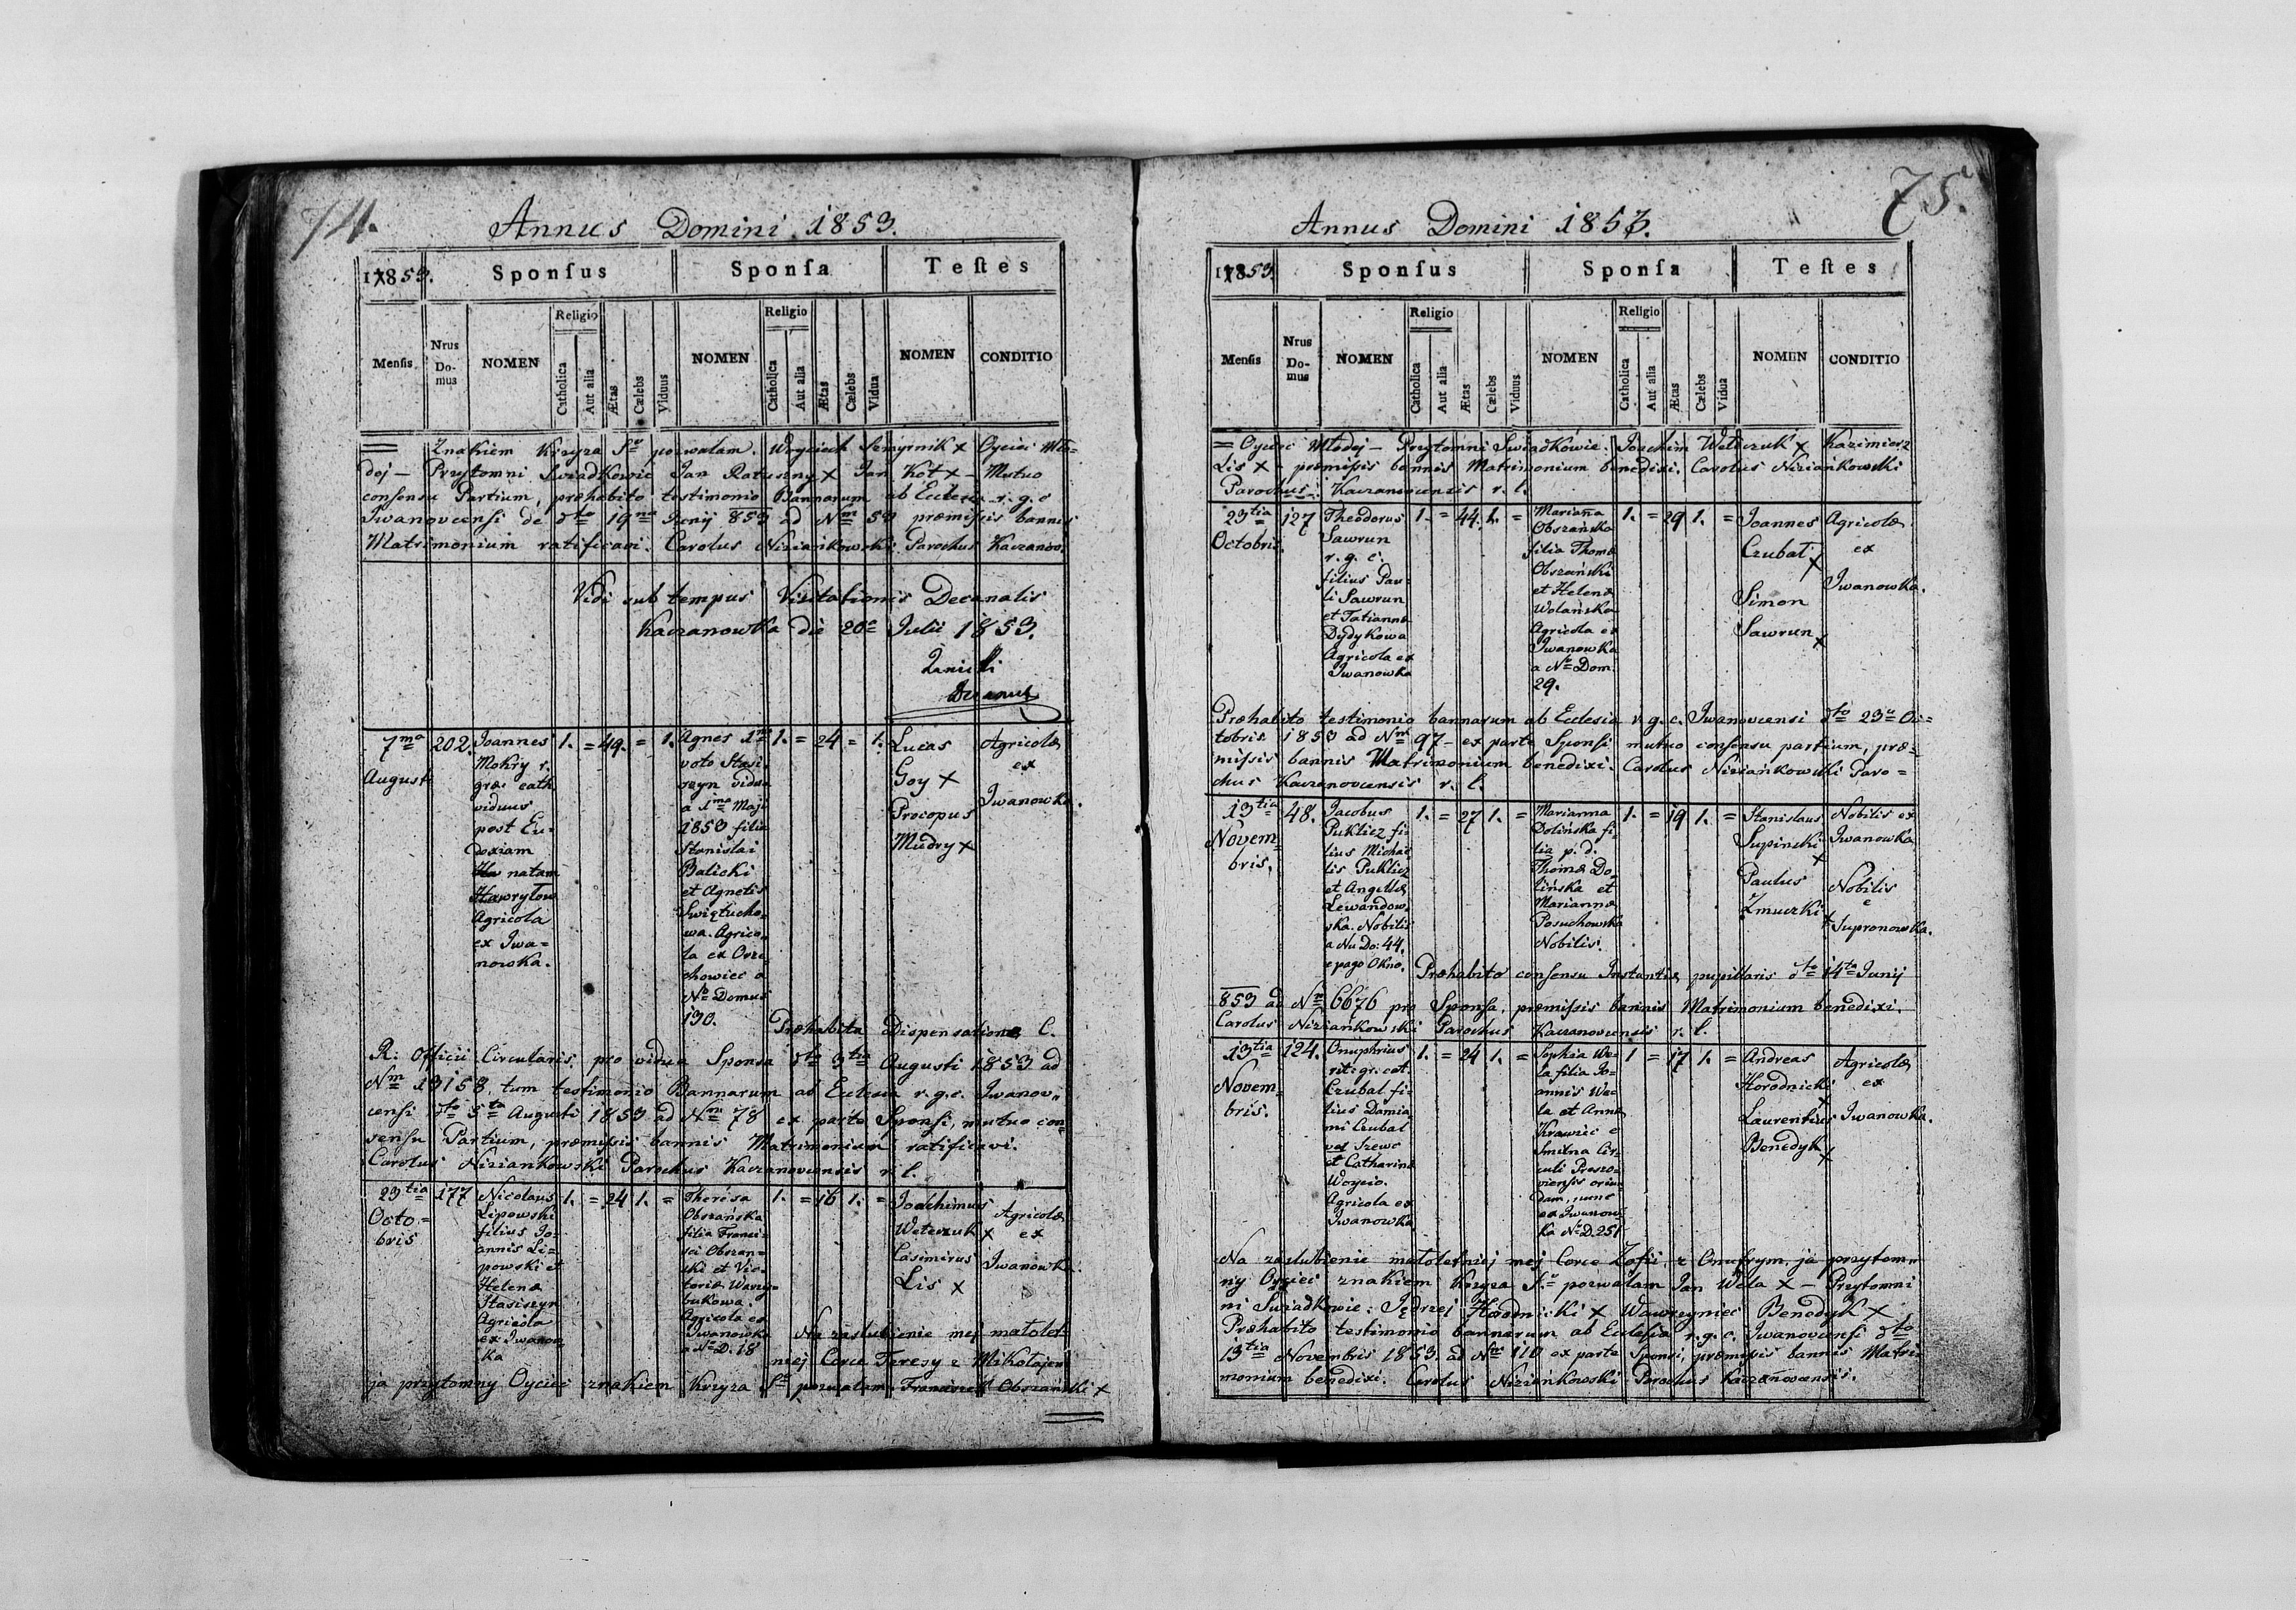 74.
Annus Domini 1853.
1853.
Sponſus
Sponſa
Teſtes
Menſis
Nrus Do-mus
NOMEN
Religio
Catholica
Aut alia
Ætas
Cælebs
Viduus
NOMEN
Religio
Catholica
Aut alia
Ætas
Cælebs
Vidua
NOMEN
CONDITIO
Znakiem Krzyza Sgo pozwalam. Woyciech Semyrnik x Oyciec Mło-
dej — Przytomni Swiadkowie Jan Ratuszny x Jan Kot x — Mutuo
consensu Partium, præhabito testimonio Bannorum ab Ecclesia r. g. c
Iwanovcensi de dto 19na Junij 853 ad Nm 59 præmiſsis bannis
Matrimonium ratificavi. Carolus Niziankowski Parochus Kaczanov.
Vidi sub tempus Visitationis Decanalis
Kaczanowka die 20a Julii 1853.
Decanus
7ma
August
202.
Joannes
Mokry r.
græ. cath.
viduus
post Eu-
doxiam
natam
Hawryłow
Agricola
ex Iwa=
nowka.
1. = 49. = 1.
Agnes 1mo
voto Stasi-
szyn vidua
a 1ma Maji
1853 filia
Stanislai
Balicki
et Agnetis
Swiętucho-
wa. Agrico-
la ex Orze-
chowiec a
No Domus
190.
1. = 24 = 1.
Lucas
Goy x
Procopus
Mudry x
Agricolæ
ex
Iwanowka.
Præhabita dispensatione C.
R. Officii Circularis, pro vidua Sponsa dto 3tia Augusti 1853 ad
Nm 13158, tum testimonio Bannorum ab Ecclesia r. g. c. Iwanov-
censi dto 5ta Augusti 1853 ad Nm 78 ex parte Sponsi, mutuo con-
sensu Partium, præmiſsis bannis Matrimonium ratificavi.
Carolus Niziankowski Parochus Kaczanovcensis r. l.
23tia
Octo=
bris
177
Nicolaus
Lipowski
filius Jo-
annis Li-
powski et
Helenæ
Stasiszyn
Agricola
ex Iwanow
ka
1. = 24 1. =
Theresa
Obszańska
filia Franci-
sci Obszan-
ski et Vic-
toriæ Warzy-
bukowa.
Agricola ex
Iwanowka
a No D. 18
1. = 16 1. =
Joachimus
Weterzuk x
Casimirus
Lis x
Agricolæ
ex
Iwanowka.
Na zaslubienie mej małolet-
niej Corce Teresy z Mikołajem
ja przytomny Oyciec znakiem Krzyza Sgo pozwalam. Franciszek Obszański x
75.
Annus Domini 1853.
1853.
Sponſus
Sponſa
Teſtes
Menſis
Nrus Do-mus
NOMEN
Religio
Catholica
Aut alia
Ætas
Cælebs
Viduus
NOMEN
Religio
Catholica
Aut alia
Ætas
Cælebs
Vidua
NOMEN
CONDITIO
= Oyciec Młodej — Przytomni Swiadkowie: Joachim Weterzuk x Kazimierz
Lis x — præmiſsis bannis Matrimonium benedixi. Carolus Niziańkowski
Parochus Kaczanovcensis r. l.
23tia
Octobris.
127
Theodorus
Sawrun
r. g. c.
filius Pau-
li Sawrun
et Tatianna
Dydykowa
Agricola ex
Iwanowka
1. = 44. 1. =
Marianna
Obszańska
filia Thomæ
Obszański
et Helenæ
Wolańska
Agricola ex
Iwanowka
a No Dom.
29.
1. = 29 1. =
Joannes
Czubat x
Simon
Sawrun x
Agricolæ
ex
Iwanowka.
Præhabito testimonio bannorum ab Ecclesia r. g. c. Iwanovcensi dto 23a Oc-
tobris 1853 ad Nm 97 — ex parte Sponsi mutuo consensu partium, præ-
miſsis bannis Matrimonium benedixi. Carolus Niziańkowski Paro=
chus Kaczanovcensis r. l.
13tia
Novem-
bris.
48.
Jacobus
Puklicz fi-
lius Michae-
lis Puklicz
et Angellæ
Lewandow-
ska. Nobilis
a Nu Do: 44.
e pago Okno.
1. = 27 1. =
Marianna
Dolińska fi-
lia p. d.
Thomæ Do-
lińska et
Mariannæ
Posuchowska
Nobilis.
1. = 19 1. =
Stanislaus
Supinski x
Paulus
Zmuczki x
Nobilis ex
Iwanowka
Nobilis
e
Supronowka.
Præhabito consensu Instantiæ pupillaris dto 14ta Junij
853 ad Nm 6676 pro Sponsa, præmiſsis bannis Matrimonium benedixi.
Carolus Niziańkowski Parochus Kaczanovcensis r. l.
13tia
Novem-
bris.
124.
Onuphrius
rit: gr: cat.
Czubal fi-
lius Damia-
ni Czubal
vel Szewc
et Catharinæ
Woycio.
Agricola ex
Iwanowka
1. = 24 1. =
Sophia We-
la filia Jo-
annis We-
la et Annæ
Krawiec e
Smilna Cir-
culi Preszo-
viensis oriun-
dam, nunc
ex Iwanow-
ka No D. 251
1 = 17 1. =
Andreas
Horodnicki x
Laurentius
Benedyk x
Agricolæ
ex
Iwanowka.
Na zaslubienie małoletniej mej Corce Zofii z Onufrym ja przytom-
ny Oyciec znakiem Krzyza Sgo pozwalam Jan Wela x — Przytomni
ni Swiadkowie: Jędrzej Horodnicki x Wawrzyniec Benedyk x
Præhabito testimonio bannorum ab Ecclesia r. g. c. Iwanovcensi dto
13tia Novembris 1853. ad Nm 110 ex parte Sponsi, præmiſsis bannis Matri-
monium benedixi. Carolus Niziańkowski Parochus Kaczanovcensis.